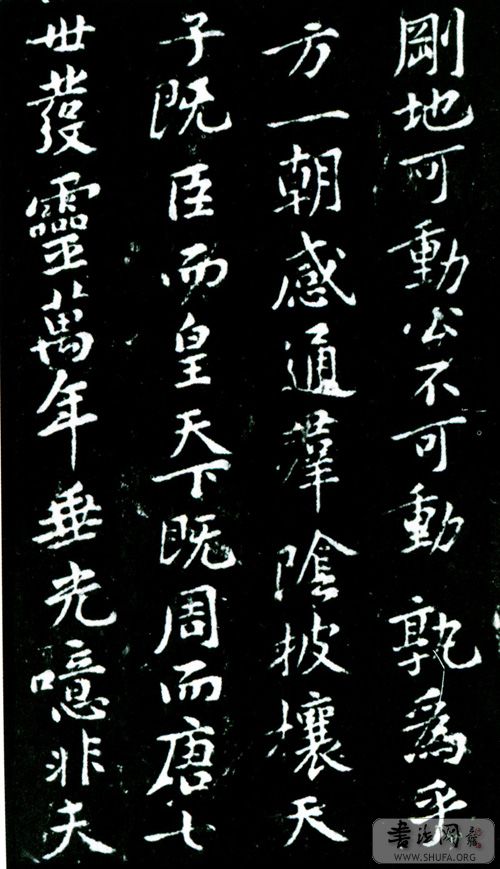 剛地可動公不可動孰爲乎
方一朝感通羣陰披攘天
子既臣而皇天下既周而唐七
世發靈萬年垂光噫非夫
書法网
WWW.SHUFA.ORG